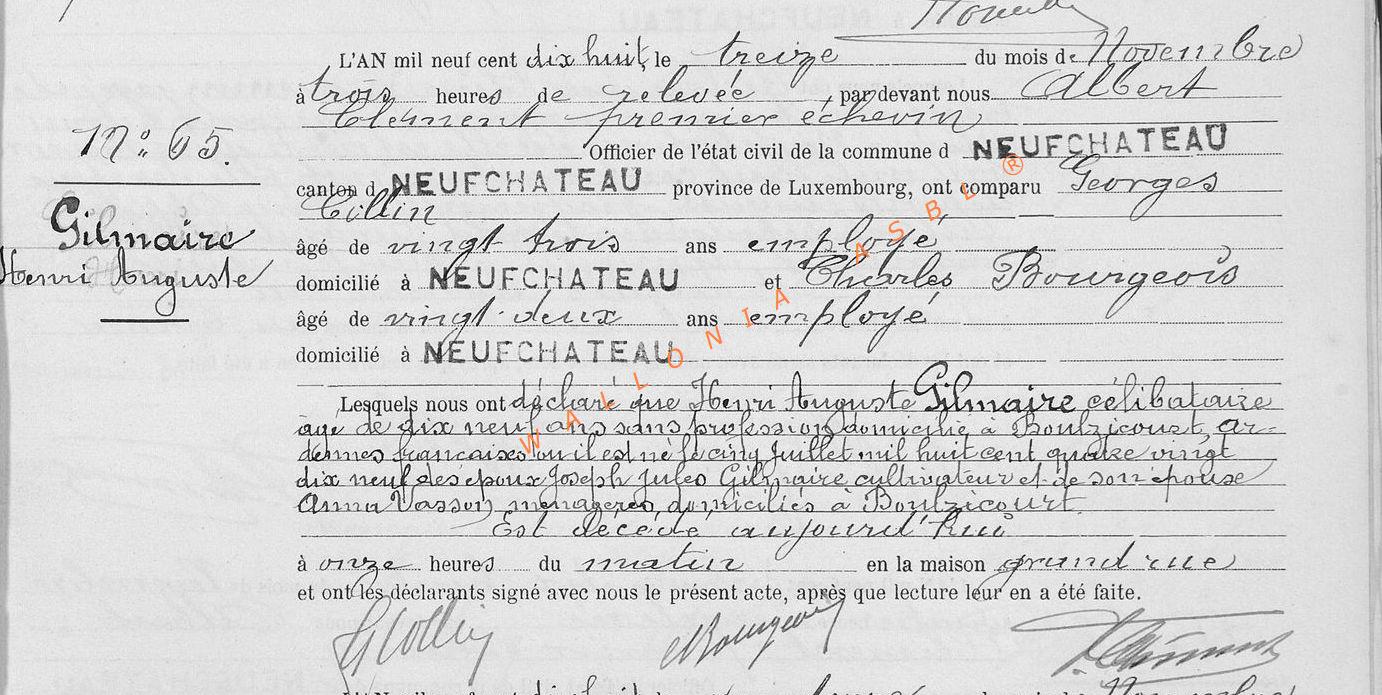 L'AN mil neuf cent dix huit, le treize du mois de Novembre
à trois heures de relevée, par devant nous Albert
Clément premier échevin
Officier de l'état civil de la commune d NEUFCHATEAU
canton d NEUFCHATEAU province de Luxembourg, ont comparu Georges
Collin
âgé de vingt trois ans employé
domicilié à NEUFCHATEAU et Charles Bourgeois
âgé de vingt deux ans employé
domicilié à NEUFCHATEAU
N° 65.
Gilmaire
Henri Auguste
Lesquels nous ont déclaré que Henri Auguste Gilmaire célibataire
âgé de dix neuf ans sans profession domicilié à Boulzicourt, Ar-
dennes françaises où il est né le cinq Juillet mil huit cent quatre vingt
dix neuf des époux Joseph Jules Gilmaire cultivateur et de son épouse
Anna Vasson ménagère, domiciliés à Boulzicourt.
Est décédé aujourd'hui
à onze heures du matin en la maison grand rue
et ont les déclarants signé avec nous le présent acte, après que lecture leur en a été faite.
G Collin Bourgeois Clément
WALLONIA ASBL ®